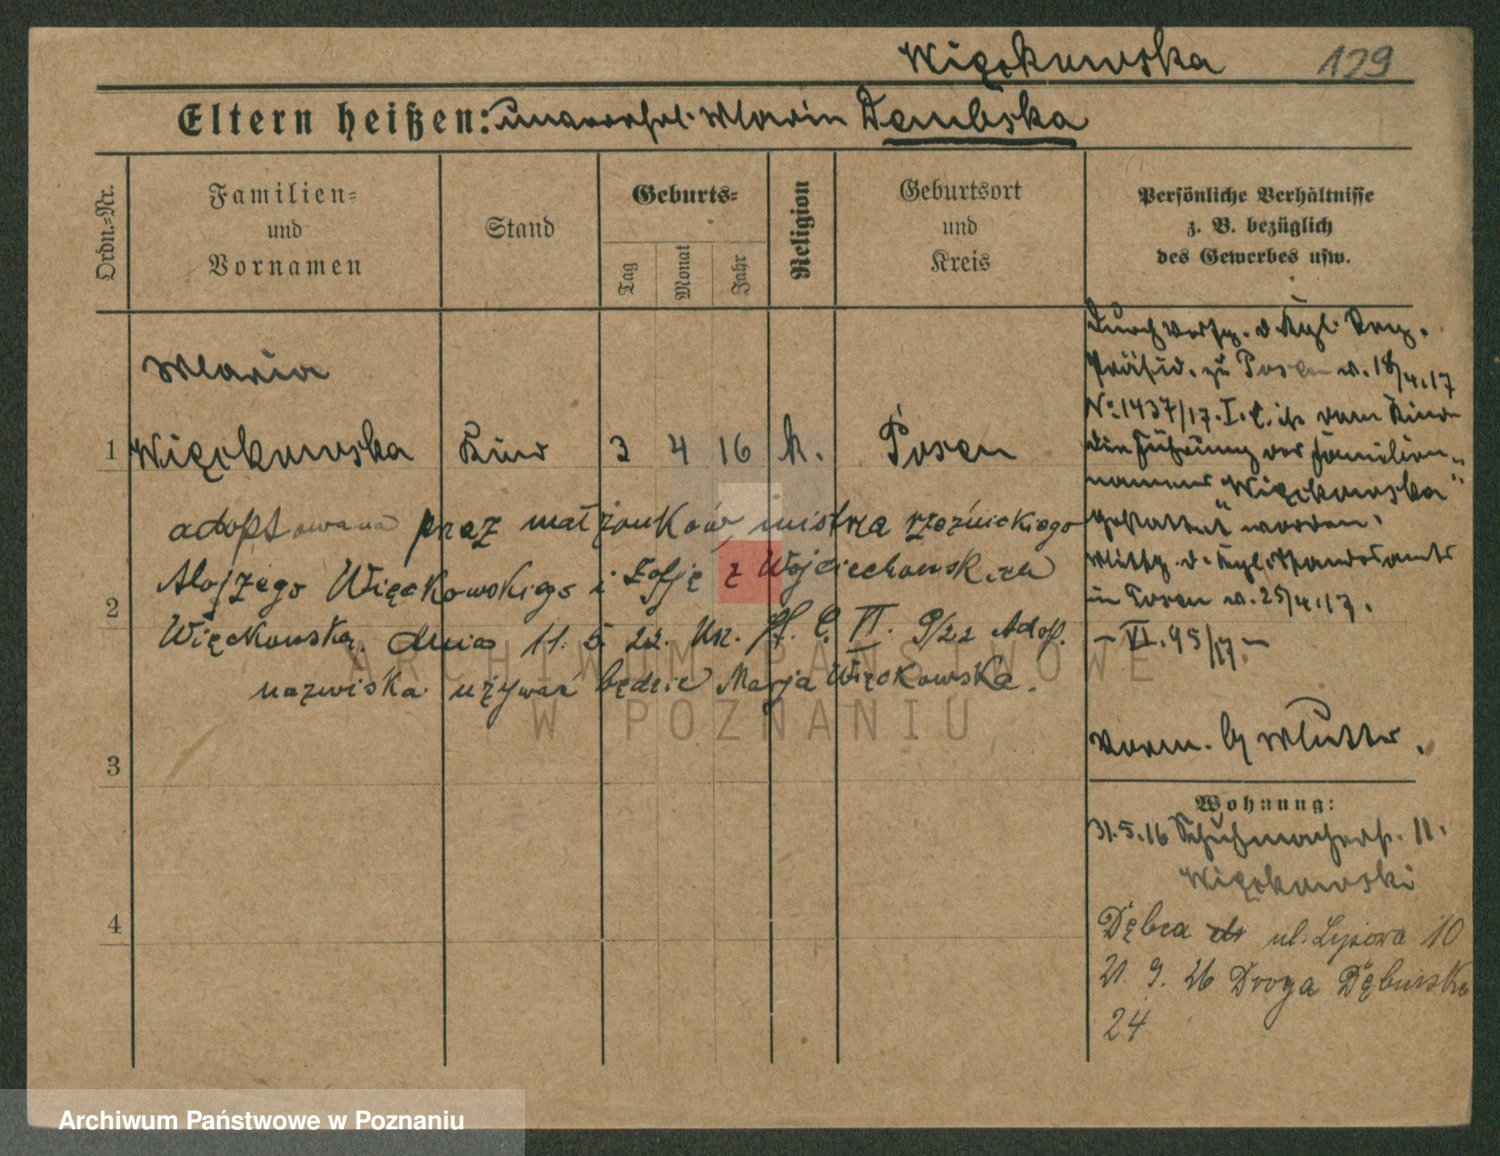 Więckowska 129
Eltern heißen: unverehel. Maria Dembska
Ordn.-Nr.
Familien- und Vornamen
Stand
Geburts-
Tag
Monat
Jahr
Religion
Geburtsort und Kreis
Persönliche Verhältnisse
z. B. bezüglich
des Gewerbes usw.
Maria
1 Więckowska Kind 3 4 16 k. Posen
adoptowana przez małżonków mistrza rzeźnickiego
Alojzego Więckowskiego i Zofję z Wojciechowskich
2
Więckowską dnia 11. 5. 22. Urz. St. C. VI. 9/22 Adop.
nazwiska używać będzie Marja Więckowska.
3
4
Durch Verfg. d. Kgl. Reg.
Präsid. zu Posen v. 18/4.17
No 1437/17. I. C. ist dem Kinde
die Führung des Familien-
namens "Więckowska"
gestattet worden.
Mittg. d. Kgl. Standesamts
in Posen v. 25/4.17.
- VI. 95/17 -
Vorm. b/ Mutter.
Wohnung:
31.5.16 Schuhmacherstr. 11.
Więckowski
Dębca ul. Łysowa 10
21. 9. 26 Droga Dębińska
24
ARCHIWUM PAŃSTWOWE
W POZNANIU
Archiwum Państwowe w Poznaniu